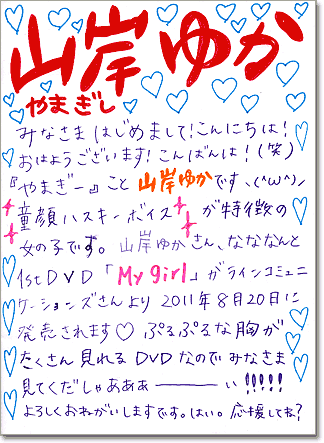 山岸ゆか
やまぎし
みなさまはじめまして!こんにちは!
おはようございます!こんばんは!(笑)
『やまぎー』こと山岸ゆかです、(^ω^)ノ
童顔ハスキーボイスが特徴の
女の子です。山岸ゆかさん、なななんと
1stDVD「My girl」がラインコミュニ
ケーションズさんより2011年8月20日に
発売されます♡ ぷるぷるな胸が
たくさん見れるDVDなのでみなさま
見てくだしゃあああーーーい!!!!!
よろしくおねがいしますです。はい。応援してね?